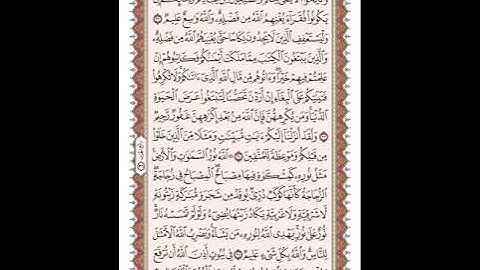 يَكُونُوا۟ فُقَرَآءَ يُغْنِهِمُ ٱللَّهُ مِن فَضْلِهِۦ ۗ وَٱللَّهُ وَٰسِعٌ عَلِيمٌ ٣٢
وَلْيَسْتَعْفِفِ ٱلَّذِينَ لَا يَجِدُونَ نِكَاحًا حَتَّىٰ يُغْنِيَهُمُ ٱللَّهُ مِن فَضْلِهِۦ ۗ
وَٱلَّذِينَ يَبْتَغُونَ ٱلْكِتَٰبَ مِمَّا مَلَكَتْ أَيْمَٰنُكُمْ فَكَاتِبُوهُمْ إِنْ
عَلِمْتُمْ فِيهِمْ خَيْرًا ۖ وَءَاتُوهُم مِّن مَّالِ ٱللَّهِ ٱلَّذِىٓ ءَاتَىٰكُمْ ۚ وَلَا تُكْرِهُوا۟
فَتَيَٰتِكُمْ عَلَى ٱلْبِغَآءِ إِنْ أَرَدْنَ تَحَصُّنًا لِّتَبْتَغُوا۟ عَرَضَ ٱلْحَيَوٰةِ
ٱلدُّنْيَا ۚ وَمَن يُكْرِههُّنَّ فَإِنَّ ٱللَّهَ مِنۢ بَعْدِ إِكْرَٰهِهِنَّ غَفُورٌ رَّحِيمٌ
٣٣ وَلَقَدْ أَنزَلْنَآ إِلَيْكُمْ ءَايَٰتٍ مُّبَيِّنَٰتٍ وَمَثَلًا مِّنَ ٱلَّذِينَ خَلَوْا۟
مِن قَبْلِكُمْ وَمَوْعِظَةً لِّلْمُتَّقِينَ ٣٤ ۞ ٱللَّهُ نُورُ ٱلسَّمَٰوَٰتِ وَٱلْأَرْضِ ۚ
مَثَلُ نُورِهِۦ كَمِشْكَوٰةٍ فِيهَا مِصْبَاحٌ ۖ ٱلْمِصْبَاحُ فِى زُجَاجَةٍ ۖ
ٱلزُّجَاجَةُ كَأَنَّهَا كَوْكَبٌ دُرِّىٌّ يُوقَدُ مِن شَجَرَةٍ مُّبَٰرَكَةٍ زَيْتُونَةٍ
لَّا شَرْقِيَّةٍ وَلَا غَرْبِيَّةٍ يَكَادُ زَيْتُهَا يُضِىٓءُ وَلَوْ لَمْ تَمْسَسْهُ نَارٌ ۚ
نُّورٌ عَلَىٰ نُورٍ ۗ يَهْدِى ٱللَّهُ لِنُورِهِۦ مَن يَشَآءُ ۚ وَيَضْرِبُ ٱللَّهُ ٱلْأَمْثَٰلَ
لِلنَّاسِ ۗ وَٱللَّهُ بِكُلِّ شَىْءٍ عَلِيمٌ ٣٥ فِى بُيُوتٍ أَذِنَ ٱللَّهُ أَن تُرْفَعَ